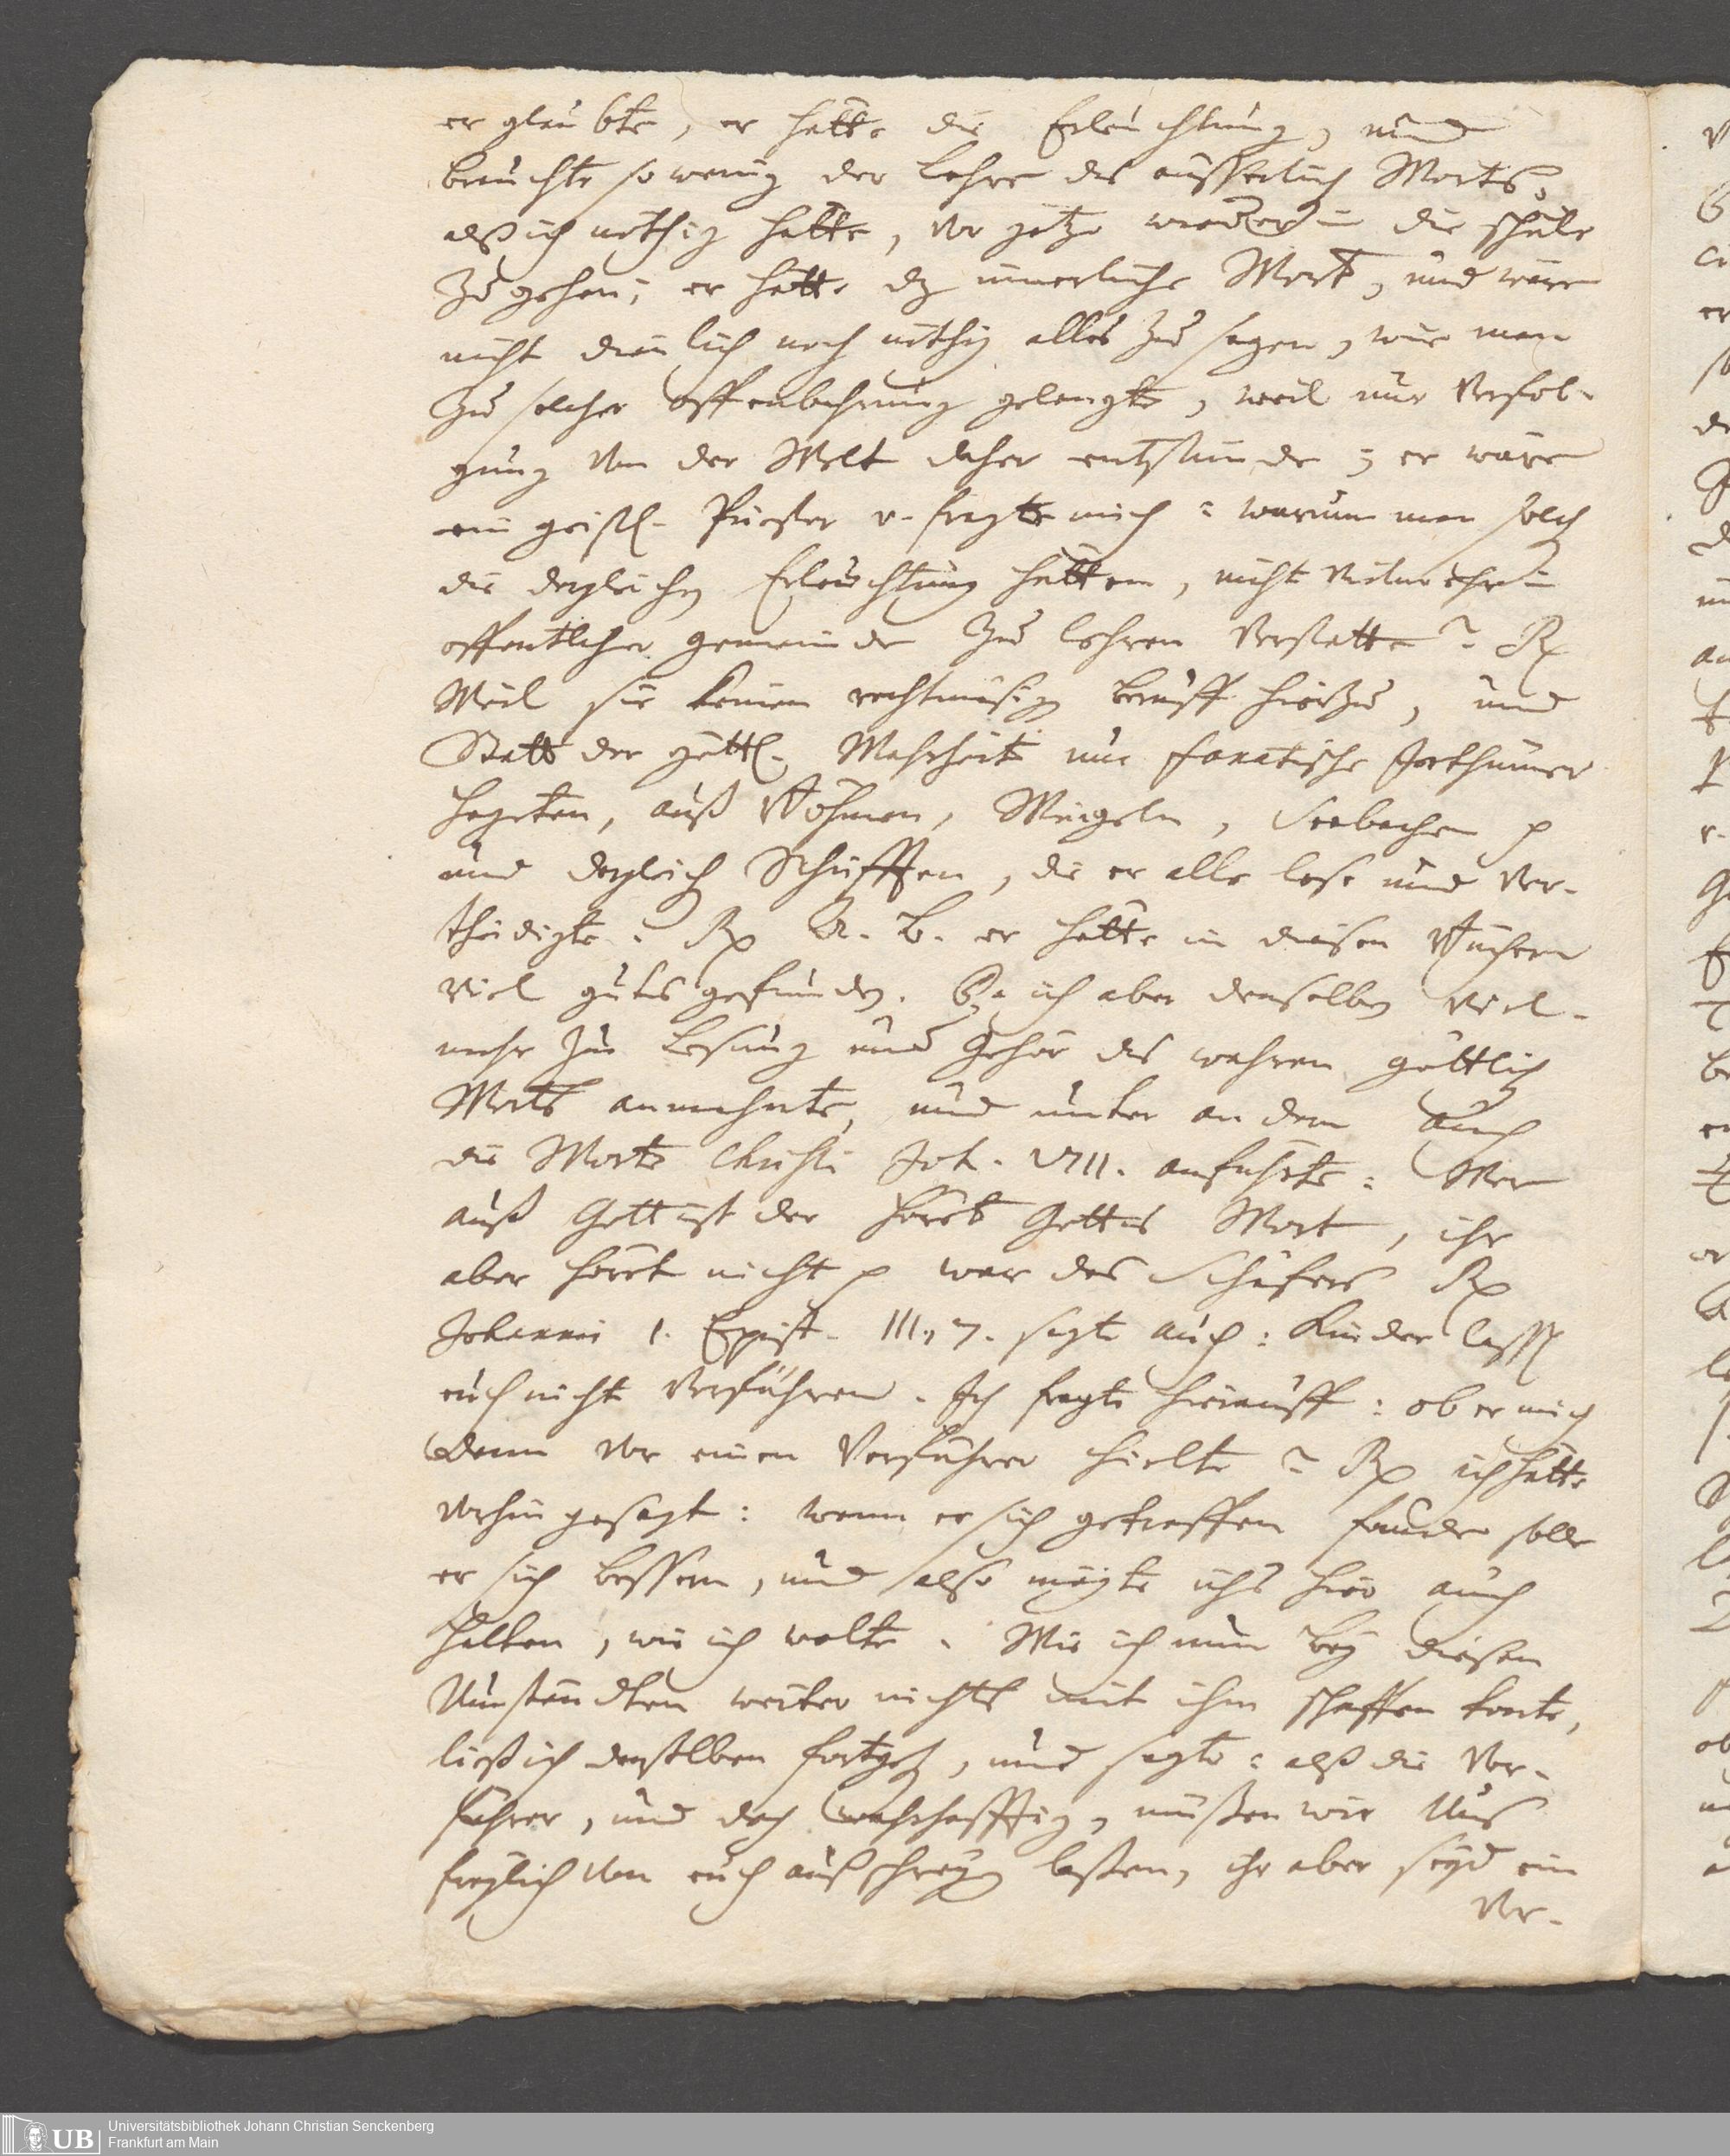 er glaubte, er hätte die Erleuchtung, und
brauchte so wenig der Lehre des äusserlich Worts,
alß ich nöthig hätte, vor jetzo wieder in die schule
zu gehen; er hätte dz innerliche Wort, und wäre
nicht dienlich noch nöthig alles zu sagen, wie man
zu solcher Offenbahrung gelangte, weil nur Verfol-
gung von der Welt daher entstünde; er wäre
ein geistl. Priester v. fragte mich: warum man solch
die dergleichen Erleuchtung hätten, nicht vielmehr in
öffentlicher gemeinde zu lehren verstatte? Rx
Weil sie keinen rechtmäsigen beruff hierzu, und
Statt der göttl. Wahrheit nur fanatische Irrthümer
hegeten, auß Böhmen, Weigeln, Seebachen p
und dergleich Schrifften, die er alle lese und ver-
theidigte. Rx A. B. er hätte in diesen Büchern
viel gutes gefunden. Da ich aber denselben viel-
mehr zu Lesung und Gehör des wahren göttlich
Worts anmahnte, und unter andern auch
die Worte Christi Joh. VIII. anführte: Wer
auß Gott ist der höret Gottes Wort, ihr
aber höret nicht p war des Schäfers Rx
Johannis 1. Epist. III, 7. sagte auch: Kinder lasst
euch nicht verführen. Ich fragte hierauff: ob er mich
denn vor einen Verführer hielte? Rx ich hätte
vorhin gesagt: wenn er sich getroffen fünde solle
er sich bessern, und also mögte ichs hier auch
halten, wie ich wolte. Wie ich nun bey diesen
Umständten weiter nichts mit ihm schaffen konte,
ließ ich denselben fortgeh, und sagte: alß die Ver-
führer, und doch wahrhafftig, müßen wir Uns
freylich von euch außschreyen laßen, ihr aber seyd ein
Ver-
UB
Universitätsbibliothek Johann Christian Senckenberg
Frankfurt am Main